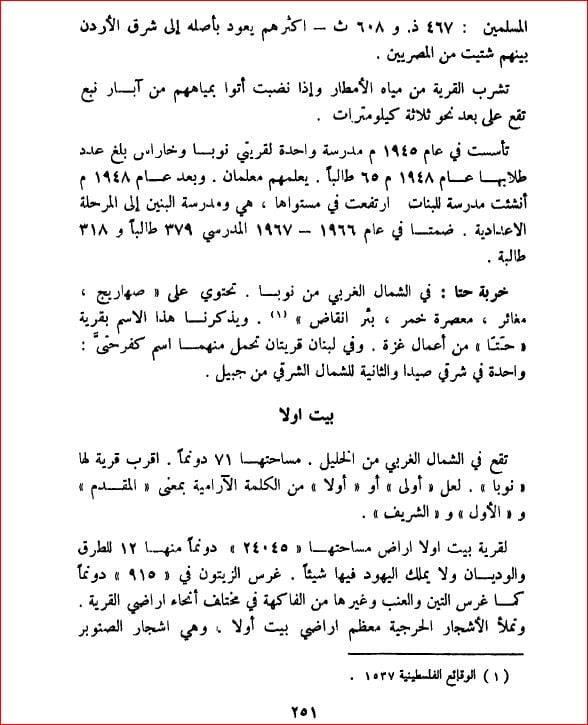 المسلمين : ٤٦٧ ذ. و ٦٠٨ ث – اكثرهم يعود بأصله إلى شرق الأردن
بينهم شتيت من المصريين .
تشرب القرية من مياه الأمطار وإذا نضبت أتوا بمياههم من آبار نبع
تقع على بعد نحو ثلاثة كيلومترات .
تأسست في عام ١٩٤٥ م مدرسة واحدة لقريتي نوبا وخاراس بلغ عدد
طلابها عام ١٩٤٨ م ٦٥ طالباً . يعلمهم معلمان . وبعد عام ١٩٤٨ م
أنشئت مدرسة للبنات ارتفعت في مستواها ، هي ومدرسة البنين إلى المرحلة
الاعدادية . ضمتا في عام ١٩٦٦ – ١٩٦٧ المدرسي ٣٧٩ طالباً و ٣١٨
طالبة .
خربة حتا : في الشمال الغربي من نوبا . تحتوي على « صهاريج ،
مغائر ، معصرة خمر ، بئر انقاض » (١) . ويذكرنا هذا الاسم بقرية
« حتّا » من أعمال غزة . وفي لبنان قريتان تحمل منهما اسم كفرحتىّ :
واحدة في شرقي صيدا والثانية للشمال الشرقي من جبيل .
بيت اولا
تقع في الشمال الغربي من الخليل . مساحتها ٧١ دونماً . اقرب قرية لها
« نوبا » . لعل « أولى » أو « أولا » من الكلمة الآرامية بمعنى « المقدم »
و « الأول » و « الشريف » .
لقرية بيت اولا اراض مساحتها « ٢٤٠٤٥ » دونماً منها ١٢ للطرق
والوديان ولا يملك اليهود فيها شيئاً . غرس الزيتون في « ٩١٥ » دونماً
كما غرس التين والعنب وغيرها من الفاكهة في مختلف أنحاء اراضي القرية .
وتملأ الأشجار الحرجية معظم اراضي بيت أولا . وهي اشجار الصنوبر
(١) الوقائع الفلسطينية ١٥٣٧ .
٢٥١